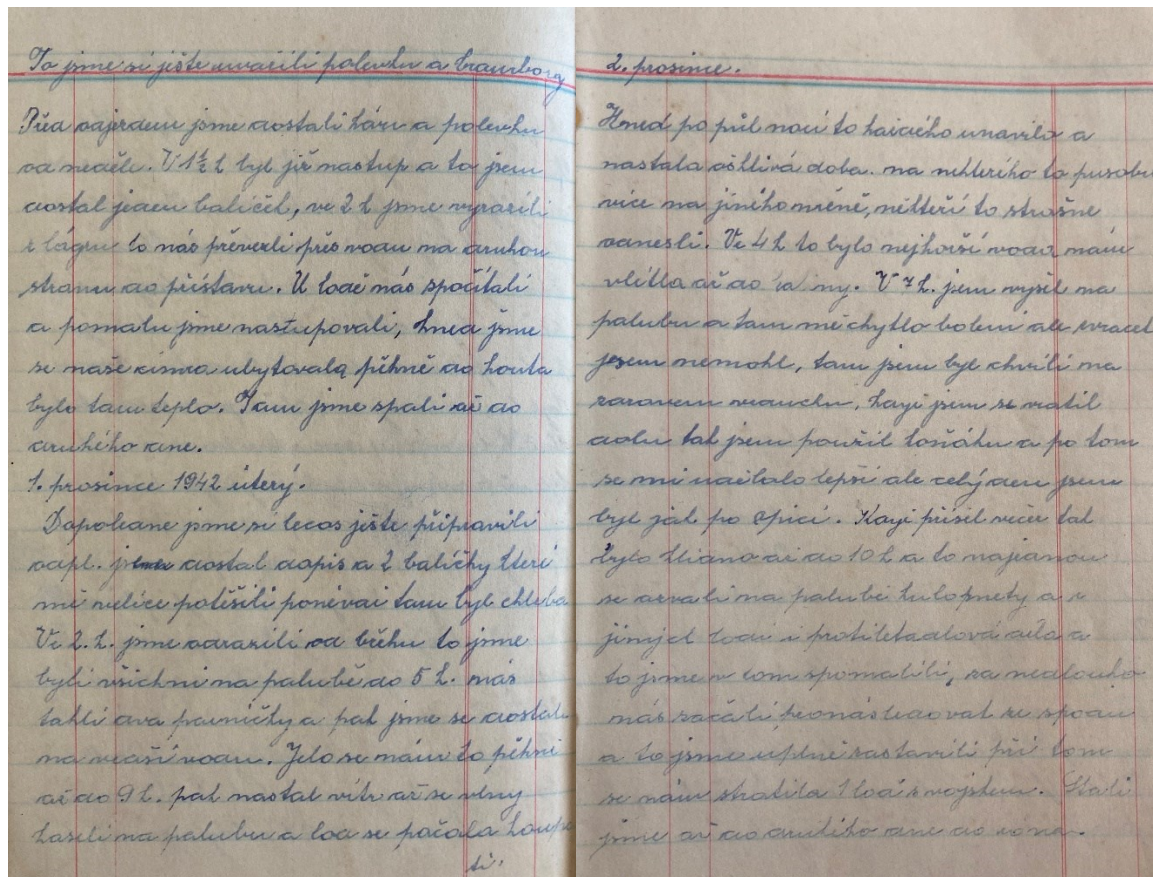 To jsme si ješte uvařili polevku a bramborg
Před vajezdem jsme dostali kávu a polevku
od neděle. V 1½ h byl již nastup a to jsem
dostal jeden balíček, ve 2 h jsme vyrazili
z lágru to nás převezli přes vodu na druhou
stranu do přístavu. U lodě nás spočítali
a pomalu jsme nastupovali, hned jsme
se naše cimra ubytovala pěkně do kouta
bylo tam teplo. Tam jsme spali až do
druhého dne.
1. prosince 1942 úterý.
Dopoledne jsme si lecos ješte připravili
odpl. jsem dostal dopis a 2 balíčky kteri
mě velice potěšili ponévač tam byl chleba
Ve 2. h. jsme odrazili od břehu to jsme
byli všichni na palubě do 5 h. nás
táhli dva parničky a pak jsme se dostali
na vedší vodu. Jelo se nám to pěkně
až do 9 h. pak nastal vítr až se vlny
kazeli na palubu a loď se počala houpa
ti.
2. prosince.
Hned po půl noci to každého unavilo a
nastala ošklivá doba. na nekterího to pusobu
více na jiného méně, někteří to strašne
odnesli. Ve 4 h to bylo nejhorší voda nám
vlítla až do V 7 h. jsem vyšel na
palubu a tam mě chytlo boleni ale zvracet
jsem nemohl, tam jsem byl chvíli na
zdravem vzduchu, kdyř jsem se vratil
dolu tak jsem použil koňáku a po tom
se mi udělalo lepší ale celý den jsem
byl jak po opici. Kdyř přišel večer tak
bylo klidno až do 10 h a to najednou
se ozvali na palubě kulopnety a z
jinych lodi i protiletadlová děla a
to jsme v tom spomalili, za nedlouho
nás začali pronásledovat ze spodu
a to jsme uplně zastavili při tom
se nám stratila 1 loď z vojskem. Stáli
jsme až do druhího dne do rána.